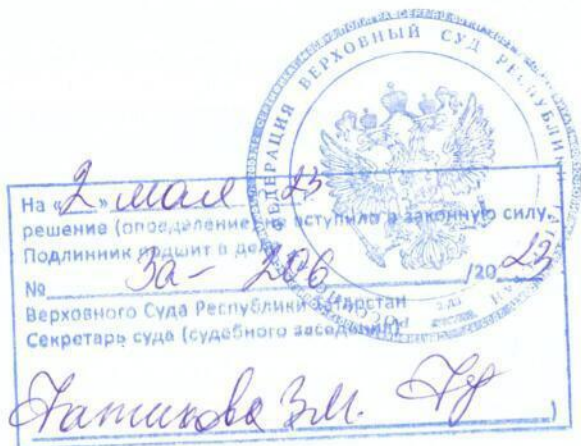 ФЕДЕРАЦИЯ ВЕРХОВНЫЙ СУД РЕСПУБЛИ
На «2» мая 23
решение (определение) не вступило в законную силу.
Подлинник подшит в дел
№ 3а- 206 /2023
Верховного Суда Республики Татарстан
Секретарь суда (судебного заседания)